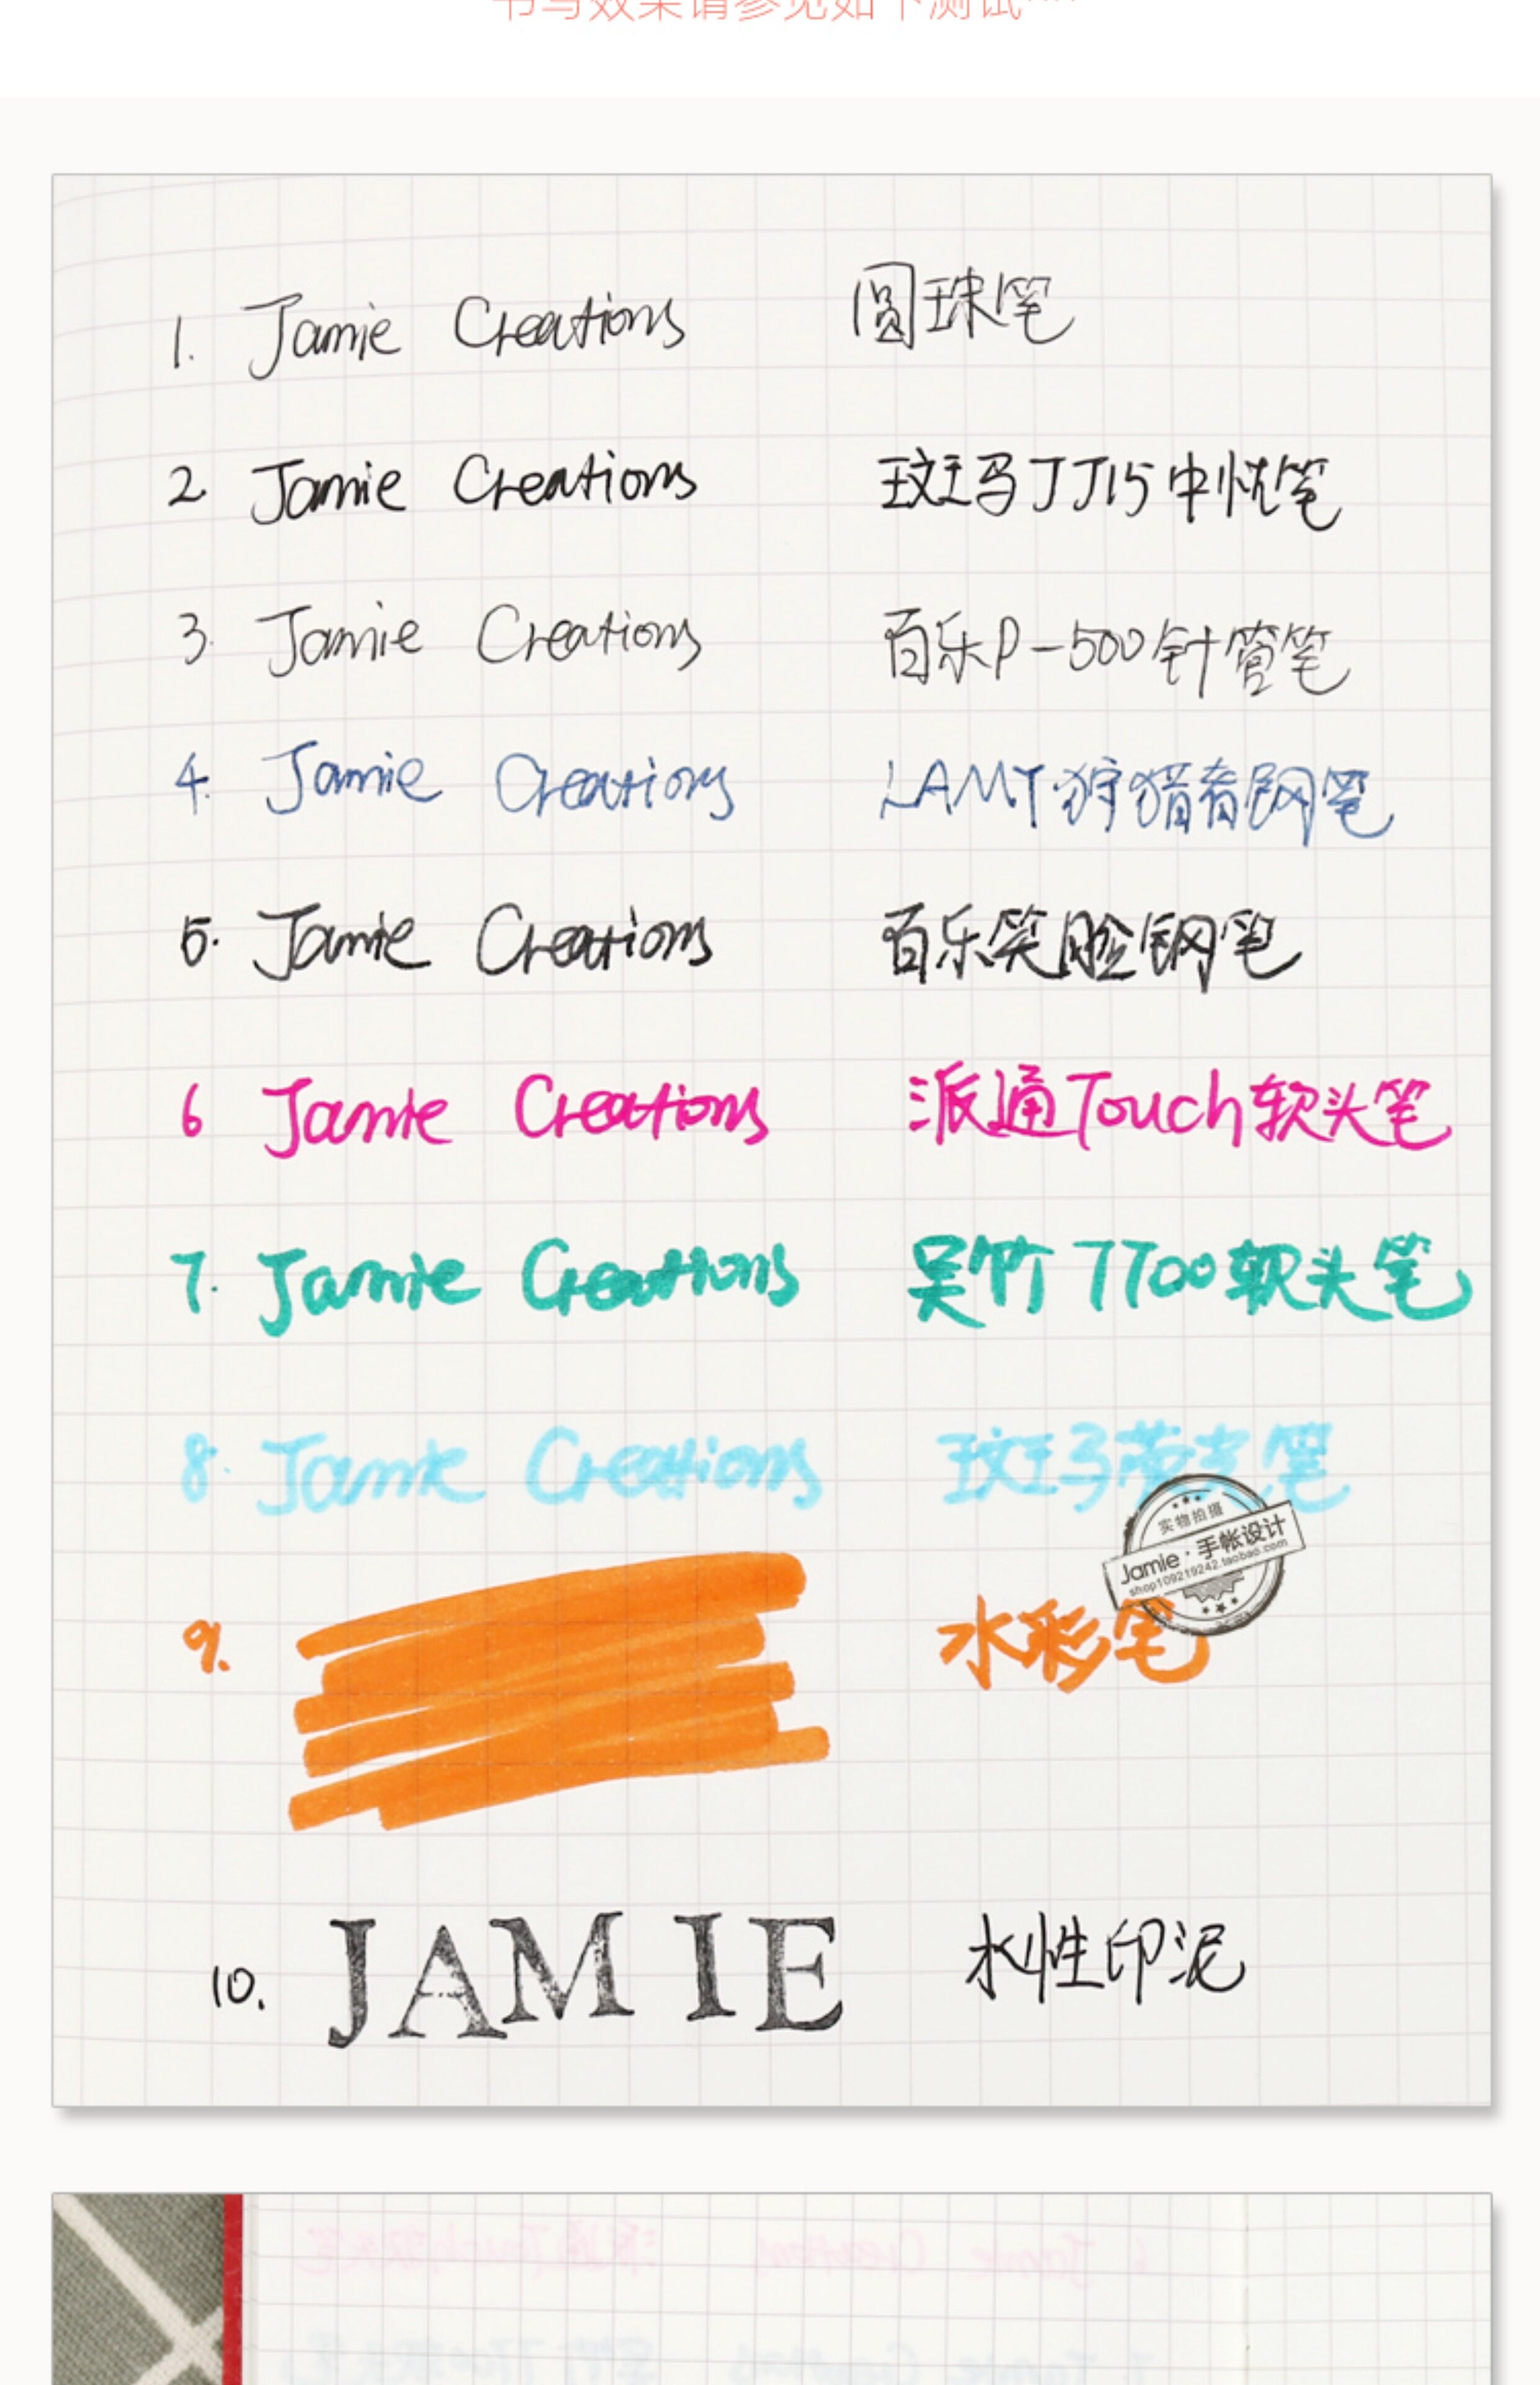 书写效果请参见如下测试
1. Jamie Creations 圆珠笔
2 Jamie Creations 斑马JJ15中性笔
3. Jamie Creations 百乐P-500针管笔
4. Jamie Creations LAMY狩猎者钢笔
5. Jamie Creations 百乐笑脸钢笔
6 Jamie Creations 派通Touch软头笔
7. Jamie Creations 吴竹TToo软头笔
8. Jamie Creations 斑马荧光笔
实物拍摄
Jamie·手帐设计
shop109219242.taobao.com
9. 水彩笔
10. JAMIE 水性印泥